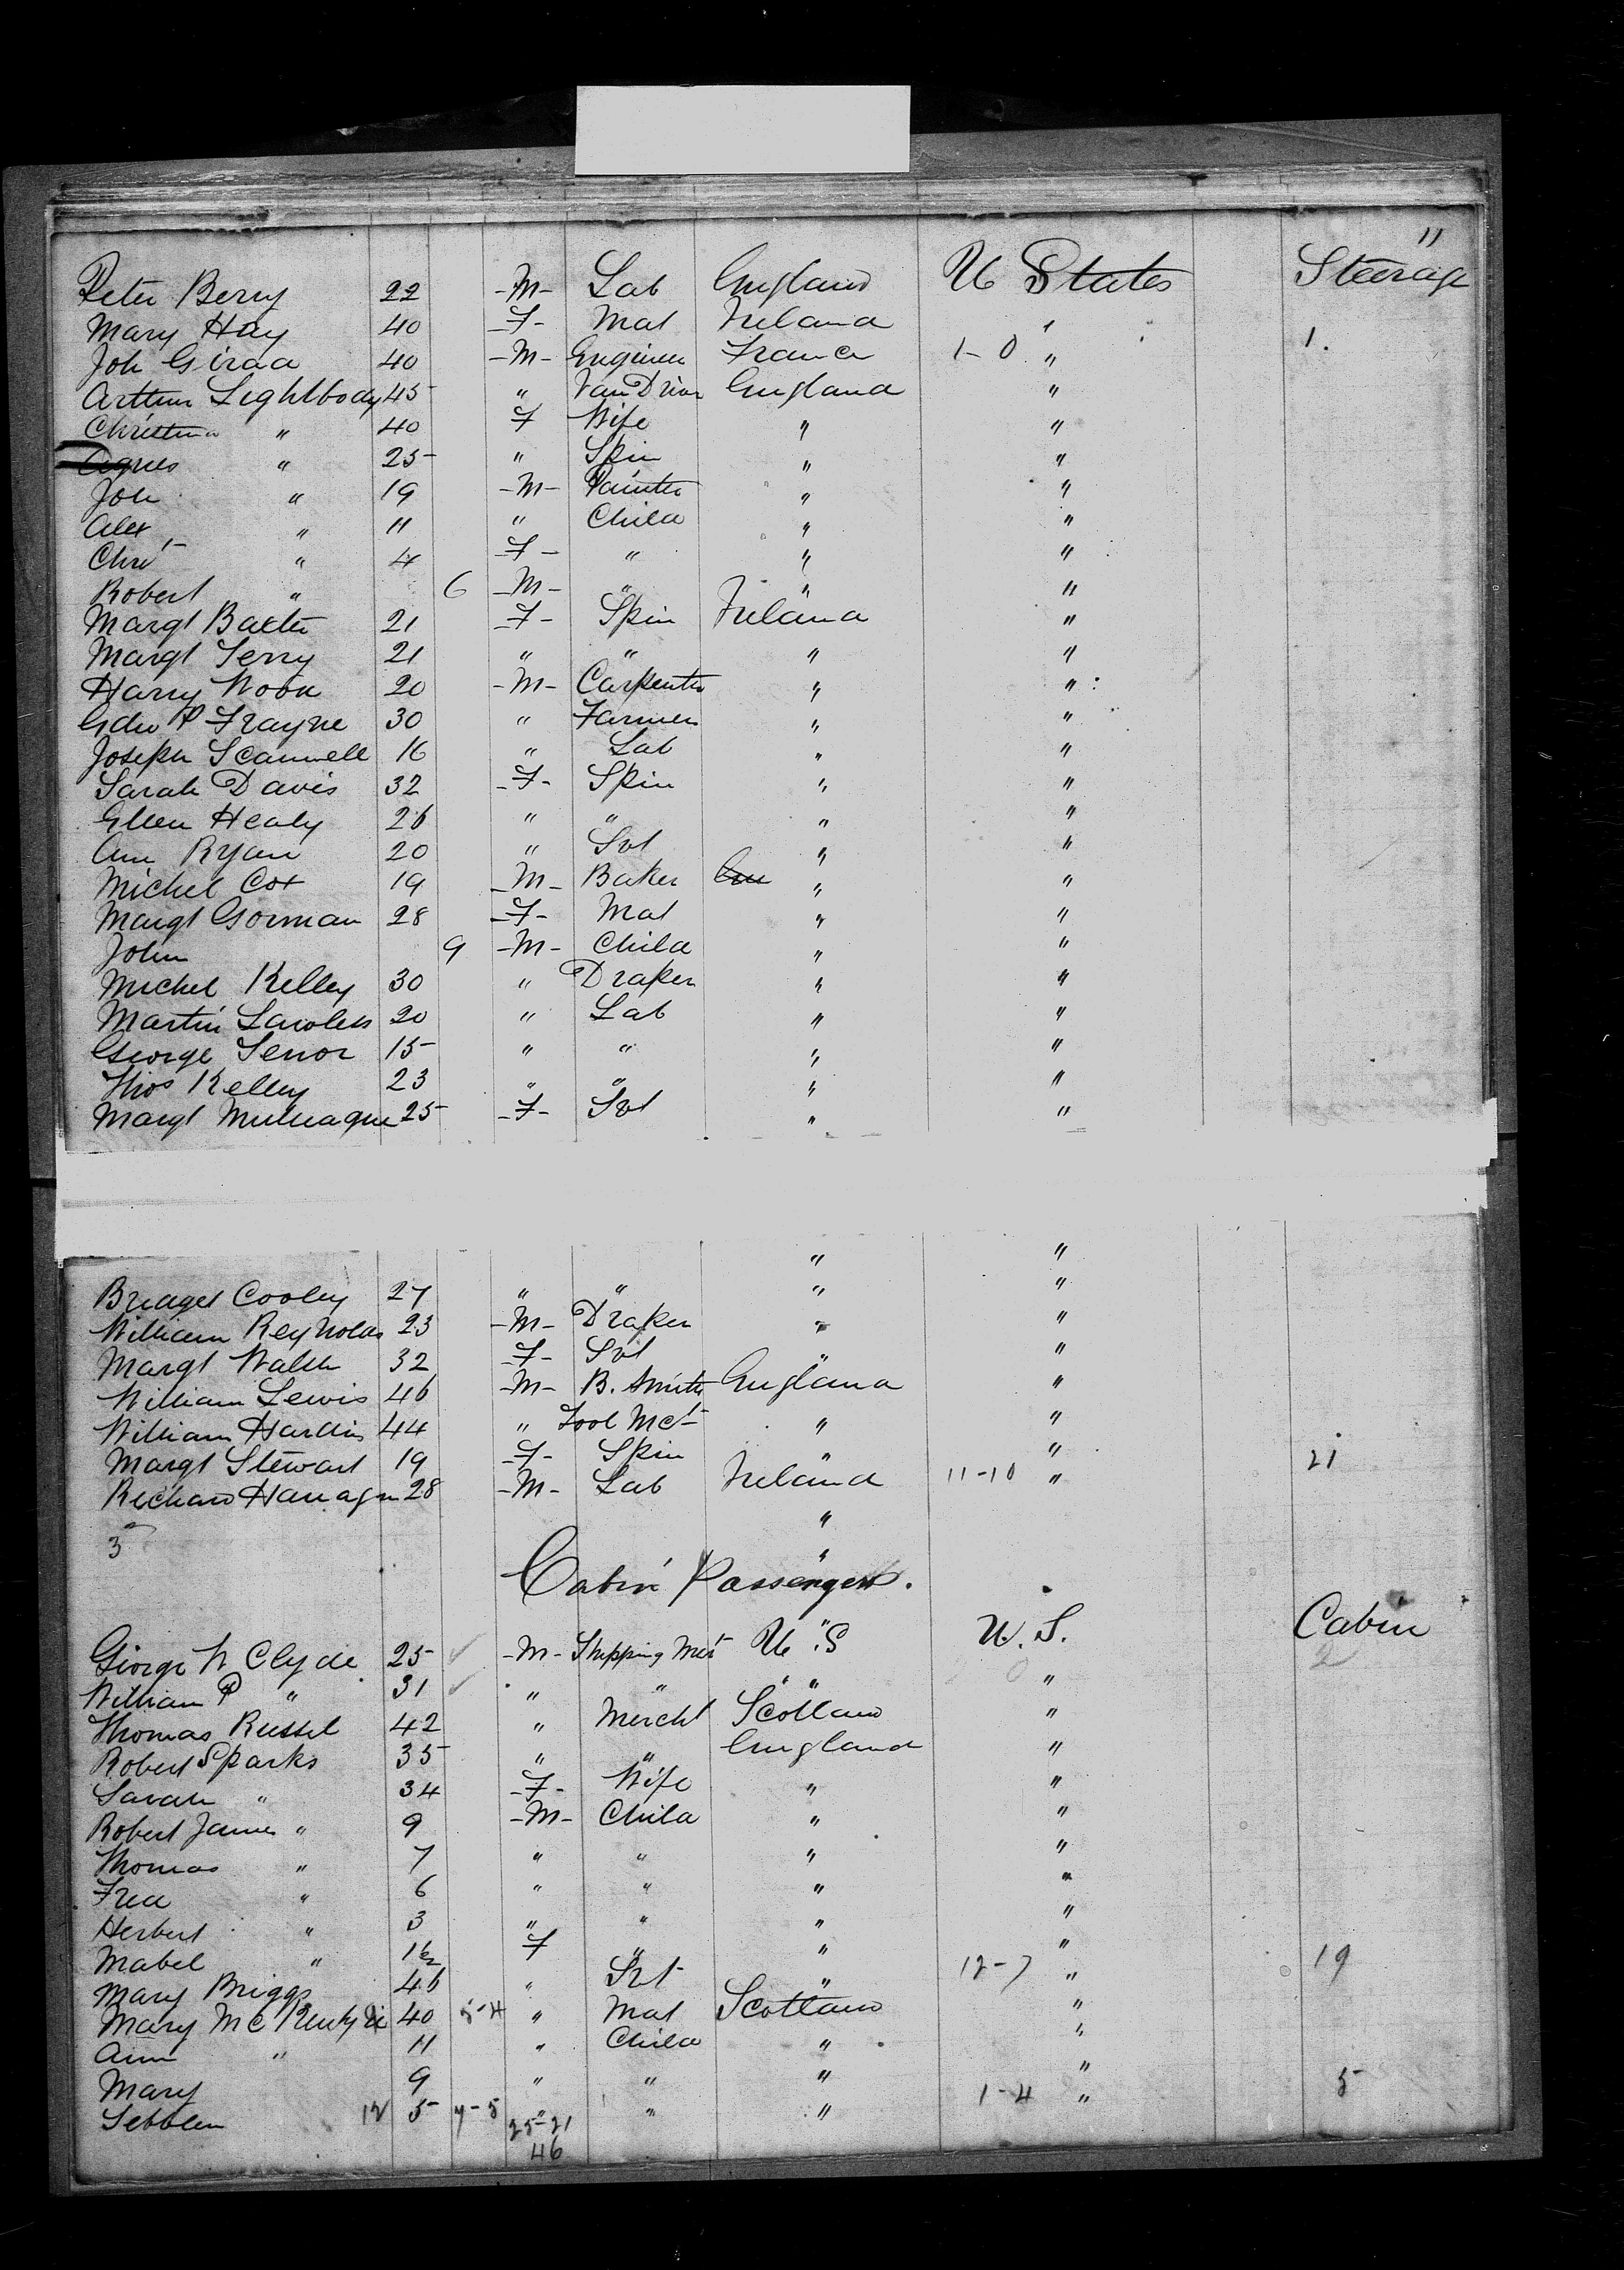 11
Peter Berry 22 -M- Lab England U States Steerage
Mary Hay 40 -F- Mat Ireland "
Joh Girad 40 -M- Engineer France 1-0 " 1.
Arthur Lightbody 45 " Van Driver England "
Christina " 40 F Wife " "
Agnes " 25 " Spin " "
Joh " 19 -M- Painter " "
Alex " 11 " Child " "
Chri " 4 -F- " " "
Robert " 6 -M- " " "
Margt Baxter 21 -F- Spin Ireland "
Margt Terry 21 " " " "
Harry 20 -M- Carpenter " "
P Frayne 30 " Farmer " "
Joseph Scannell 16 " Lab " "
Sarah Davis 32 -F- Spin " "
Ellen Healy 26 " " " "
Ann Ryan 20 " Svt " "
Michel Cox 19 -M- Baker " "
Margt Gorman 28 -F- Mat " "
John 9 -M- Child " "
Michel Kelley 30 " Draper " "
Martin Lawless 20 " Lab " "
George Senior 15 " " " "
Thos Kelley 23 " " " "
Margt 25 -F- Svt " "
" "
Bridget Cooley 27 " " " "
William Reynolds 23 -M- Draper " "
Margt Walsh 32 -F- Svt " "
William Lewis 46 -M- B. Smith England "
William Hardin 44 " Tool Mct " "
Margt Stewart 19 -F- Spin " "
Richard Hanagn 28 -M- Lab Ireland 11-10 " 21
3 "
"
Cabin Passengers.
George W Clyde 25 ✓ -M- Shipping Mert U.S U.S. Cabin 2
William P " 31 ✓ " " " " 0 "
Thomas Russel 42 " Mercht Scotland "
Robert Sparks 35 " " England "
Sarah " 34 -F- Wife " "
Robert James " 9 -M- Child " "
Thomas " 7 " " " "
Fred " 6 " " " "
Herbert " 3 " " " "
Mabel " 1½ F " " "
Mary Briggs 46 " Svt " 12-7 " 19
Mary 40 5-4 " Mat Scotland "
Ann " 11 " Child " "
Mary 9 " " " "
12 5 7-5 " " " 1-4 " 5
25-21
46